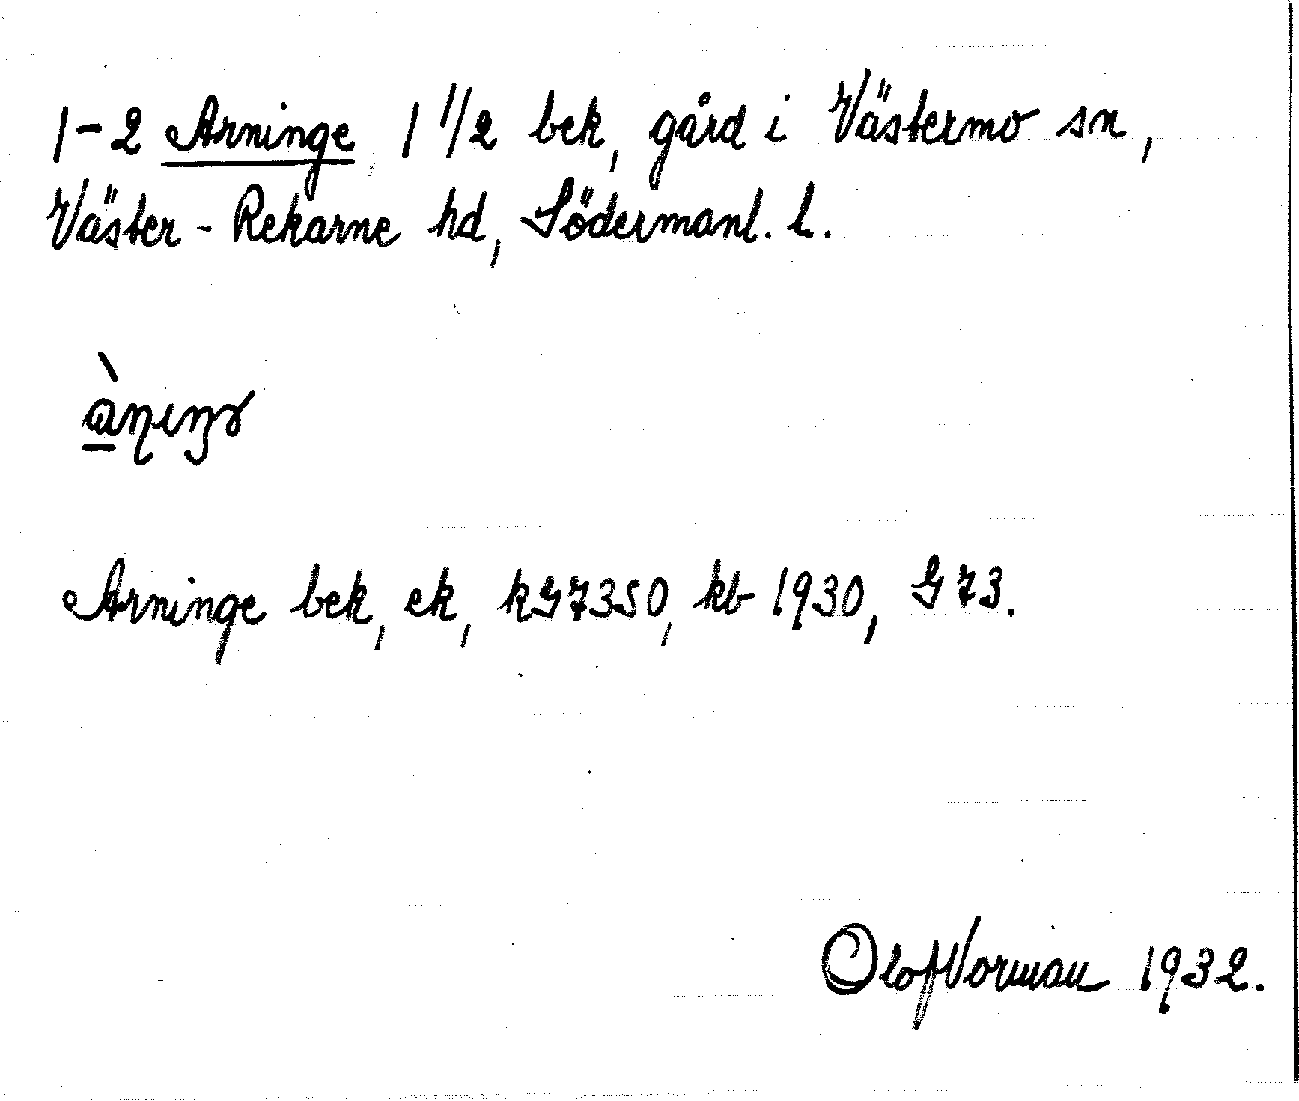 1-2 Arninge 1 1/2 bek, gård i Västermo sn,
Väster-Rekarne hd, Södermanl. l.
Arninge bek, ek, kG7350, kb 1930, G73.
Olof Norman 1932.